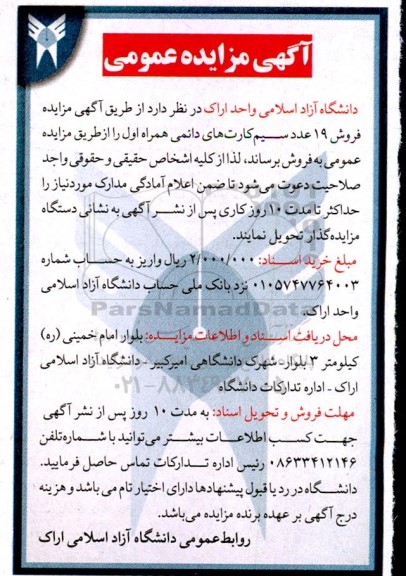 آگهی مزایده عمومی
دانشگاه آزاد اسلامی واحد اراک در نظر دارد از طریق آگهی مزایده
فروش ۱۹ عدد سیم‌کارت‌های دائمی همراه اول را ازطریق مزایده
عمومی به فروش برساند، لذا از کلیه اشخاص حقیقی و حقوقی واجد
صلاحیت دعوت می‌شود تا ضمن اعلام آمادگی مدارک موردنیاز را
حداکثر تا مدت ۱۰ روز کاری پس از نشر آگهی به نشانی دستگاه
مزایده‌گذار تحویل نمایند.
مبلغ خرید اسناد: ۲/۰۰۰/۰۰۰ ریال واریز به حساب شماره
۰۱۰۵۷۴۷۷۶۴۰۰۳ نزد بانک ملی حساب دانشگاه آزاد اسلامی
واحد اراک.
ParsNamadData
محل دریافت اسناد و اطلاعات مزایده: بلوار امام خمینی (ره)
کیلومتر ۳ بلوار- شهرک دانشگاهی امیرکبیر - دانشگاه آزاد اسلامی
اراک - اداره تدارکات دانشگاه
مهلت فروش و تحویل اسناد: به مدت ۱۰ روز پس از نشر آگهی
جهت کسب اطلاعات بیشتر می‌توانید با شماره‌تلفن
۰۸۶۳۳۴۱۲۱۴۶ رئیس اداره تدارکات تماس حاصل فرمایید.
دانشگاه در رد یا قبول پیشنهادها دارای اختیار تام می باشد و هزینه
درج آگهی بر عهده برنده مزایده می‌باشد.
روابط عمومی دانشگاه آزاد اسلامی اراک